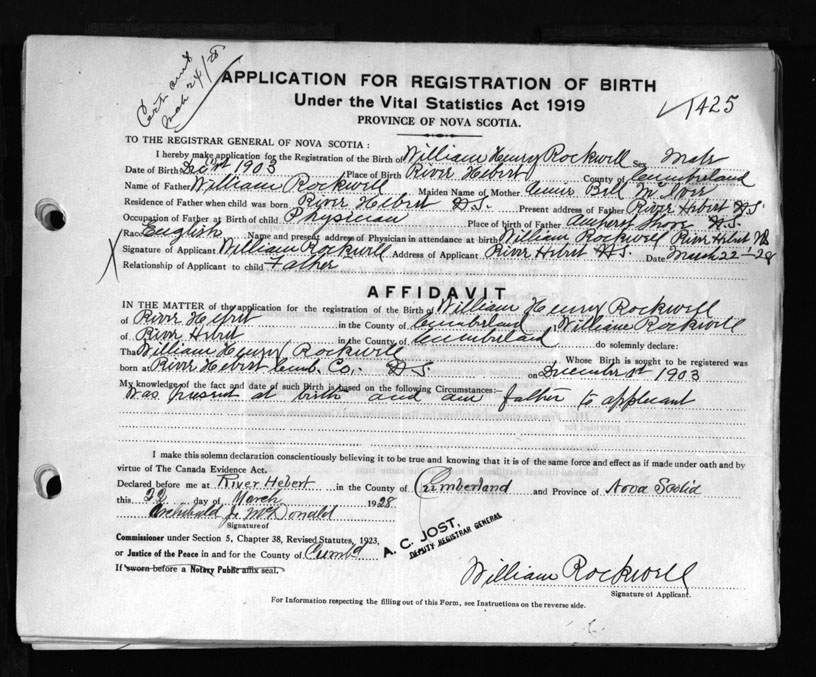 Cert sent
Mch 24/28
APPLICATION FOR REGISTRATION OF BIRTH
Under the Vital Statistics Act 1919
PROVINCE OF NOVA SCOTIA.
1425
TO THE REGISTRAR GENERAL OF NOVA SCOTIA:
I hereby make application for the Registration of the Birth of William Henry Rockwell Sex Male
Date of Birth Dec 1st 1903 Place of Birth River Hebert County of Cumberland
Name of Father William Rockwell Maiden Name of Mother Annie Bell
Residence of Father when child was born River Hebert N.S. Present address of Father River Hebert N.S.
Occupation of Father at Birth of child Physician Place of birth of Father Amherst Shore N.S.
Race English Name and present address of Physician in attendance at birth William Rockwell River Hebert N.S.
Signature of Applicant William Rockwell Address of Applicant River Hebert N.S. Date March 22-28
Relationship of Applicant to child Father
AFFIDAVIT
IN THE MATTER of the application for the registration of the Birth of William Henry Rockwell
of River Hebert in the County of Cumberland, William Rockwell
of River Hebert in the County of Cumberland do solemnly declare:
That William Henry Rockwell Whose Birth is sought to be registered was
born at River Hebert Cumb. Co., N.S. on December 1st 1903
My knowledge of the fact and date of such Birth is based on the following Circumstances:—
Was present at birth and am father to applicant
I make this solemn declaration conscientiously believing it to be true and knowing that it is of the same force and effect as if made under oath and by
virtue of The Canada Evidence Act.
Declared before me at River Hebert in the County of Cumberland and Province of Nova Scotia
this 22 day of March 1928
Archibald J. McDonald
Signature of
Commissioner under Section 5, Chapter 38, Revised Statutes, 1923,
or Justice of the Peace in and for the County of Cumb'd
If sworn before a Notary Public affix seal.
A. C. JOST,
DEPUTY REGISTRAR GENERAL
William Rockwell
Signature of Applicant.
For Information respecting the filling out of this Form, see Instructions on the reverse side.